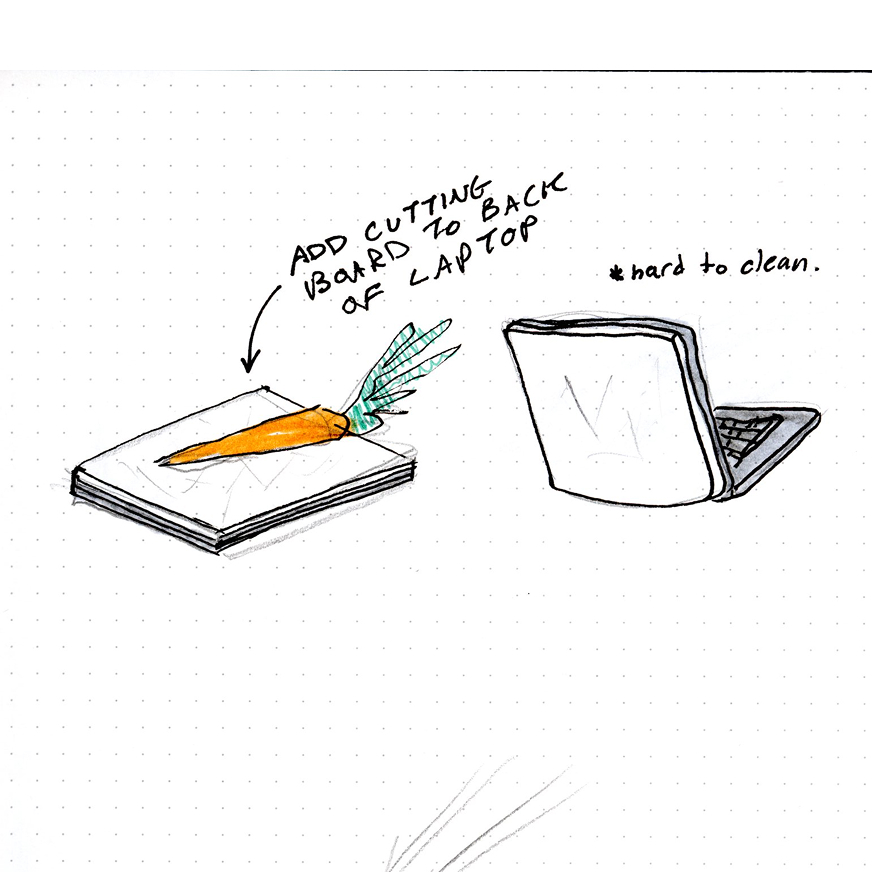 ADD CUTTING
BOARD TO BACK
OF LAPTOP
*hard to clean.